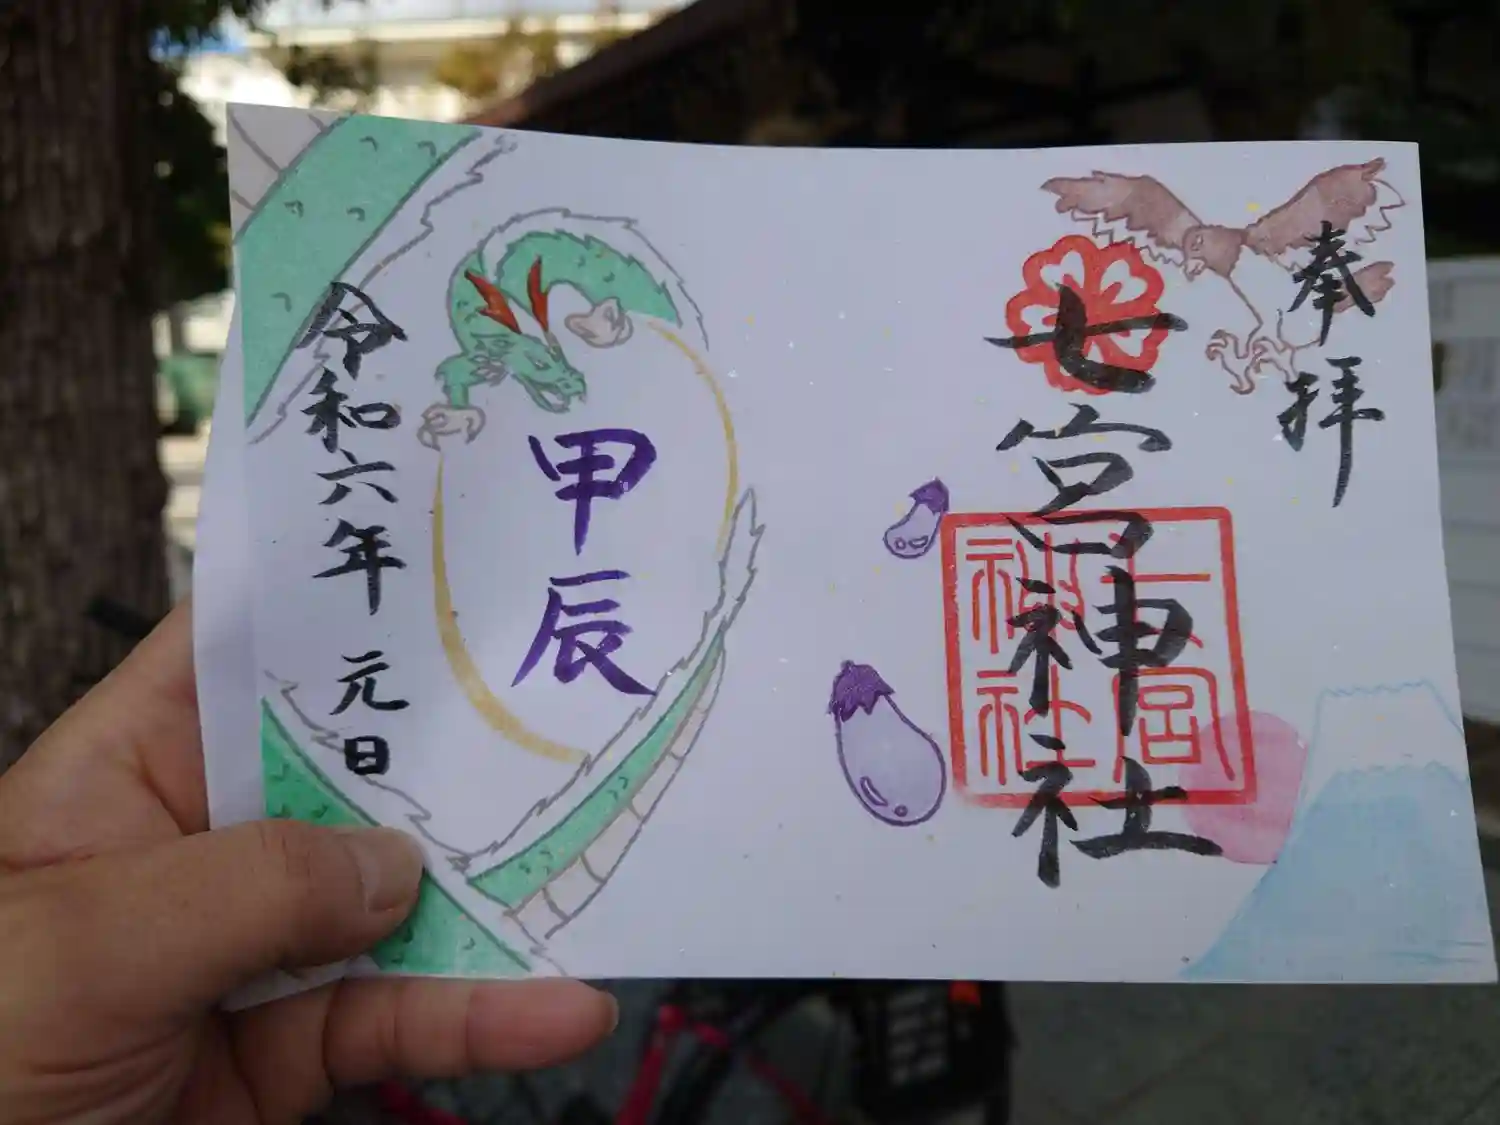 奉拝
七宮神社
七宮
神社
甲辰
令和六年 元日